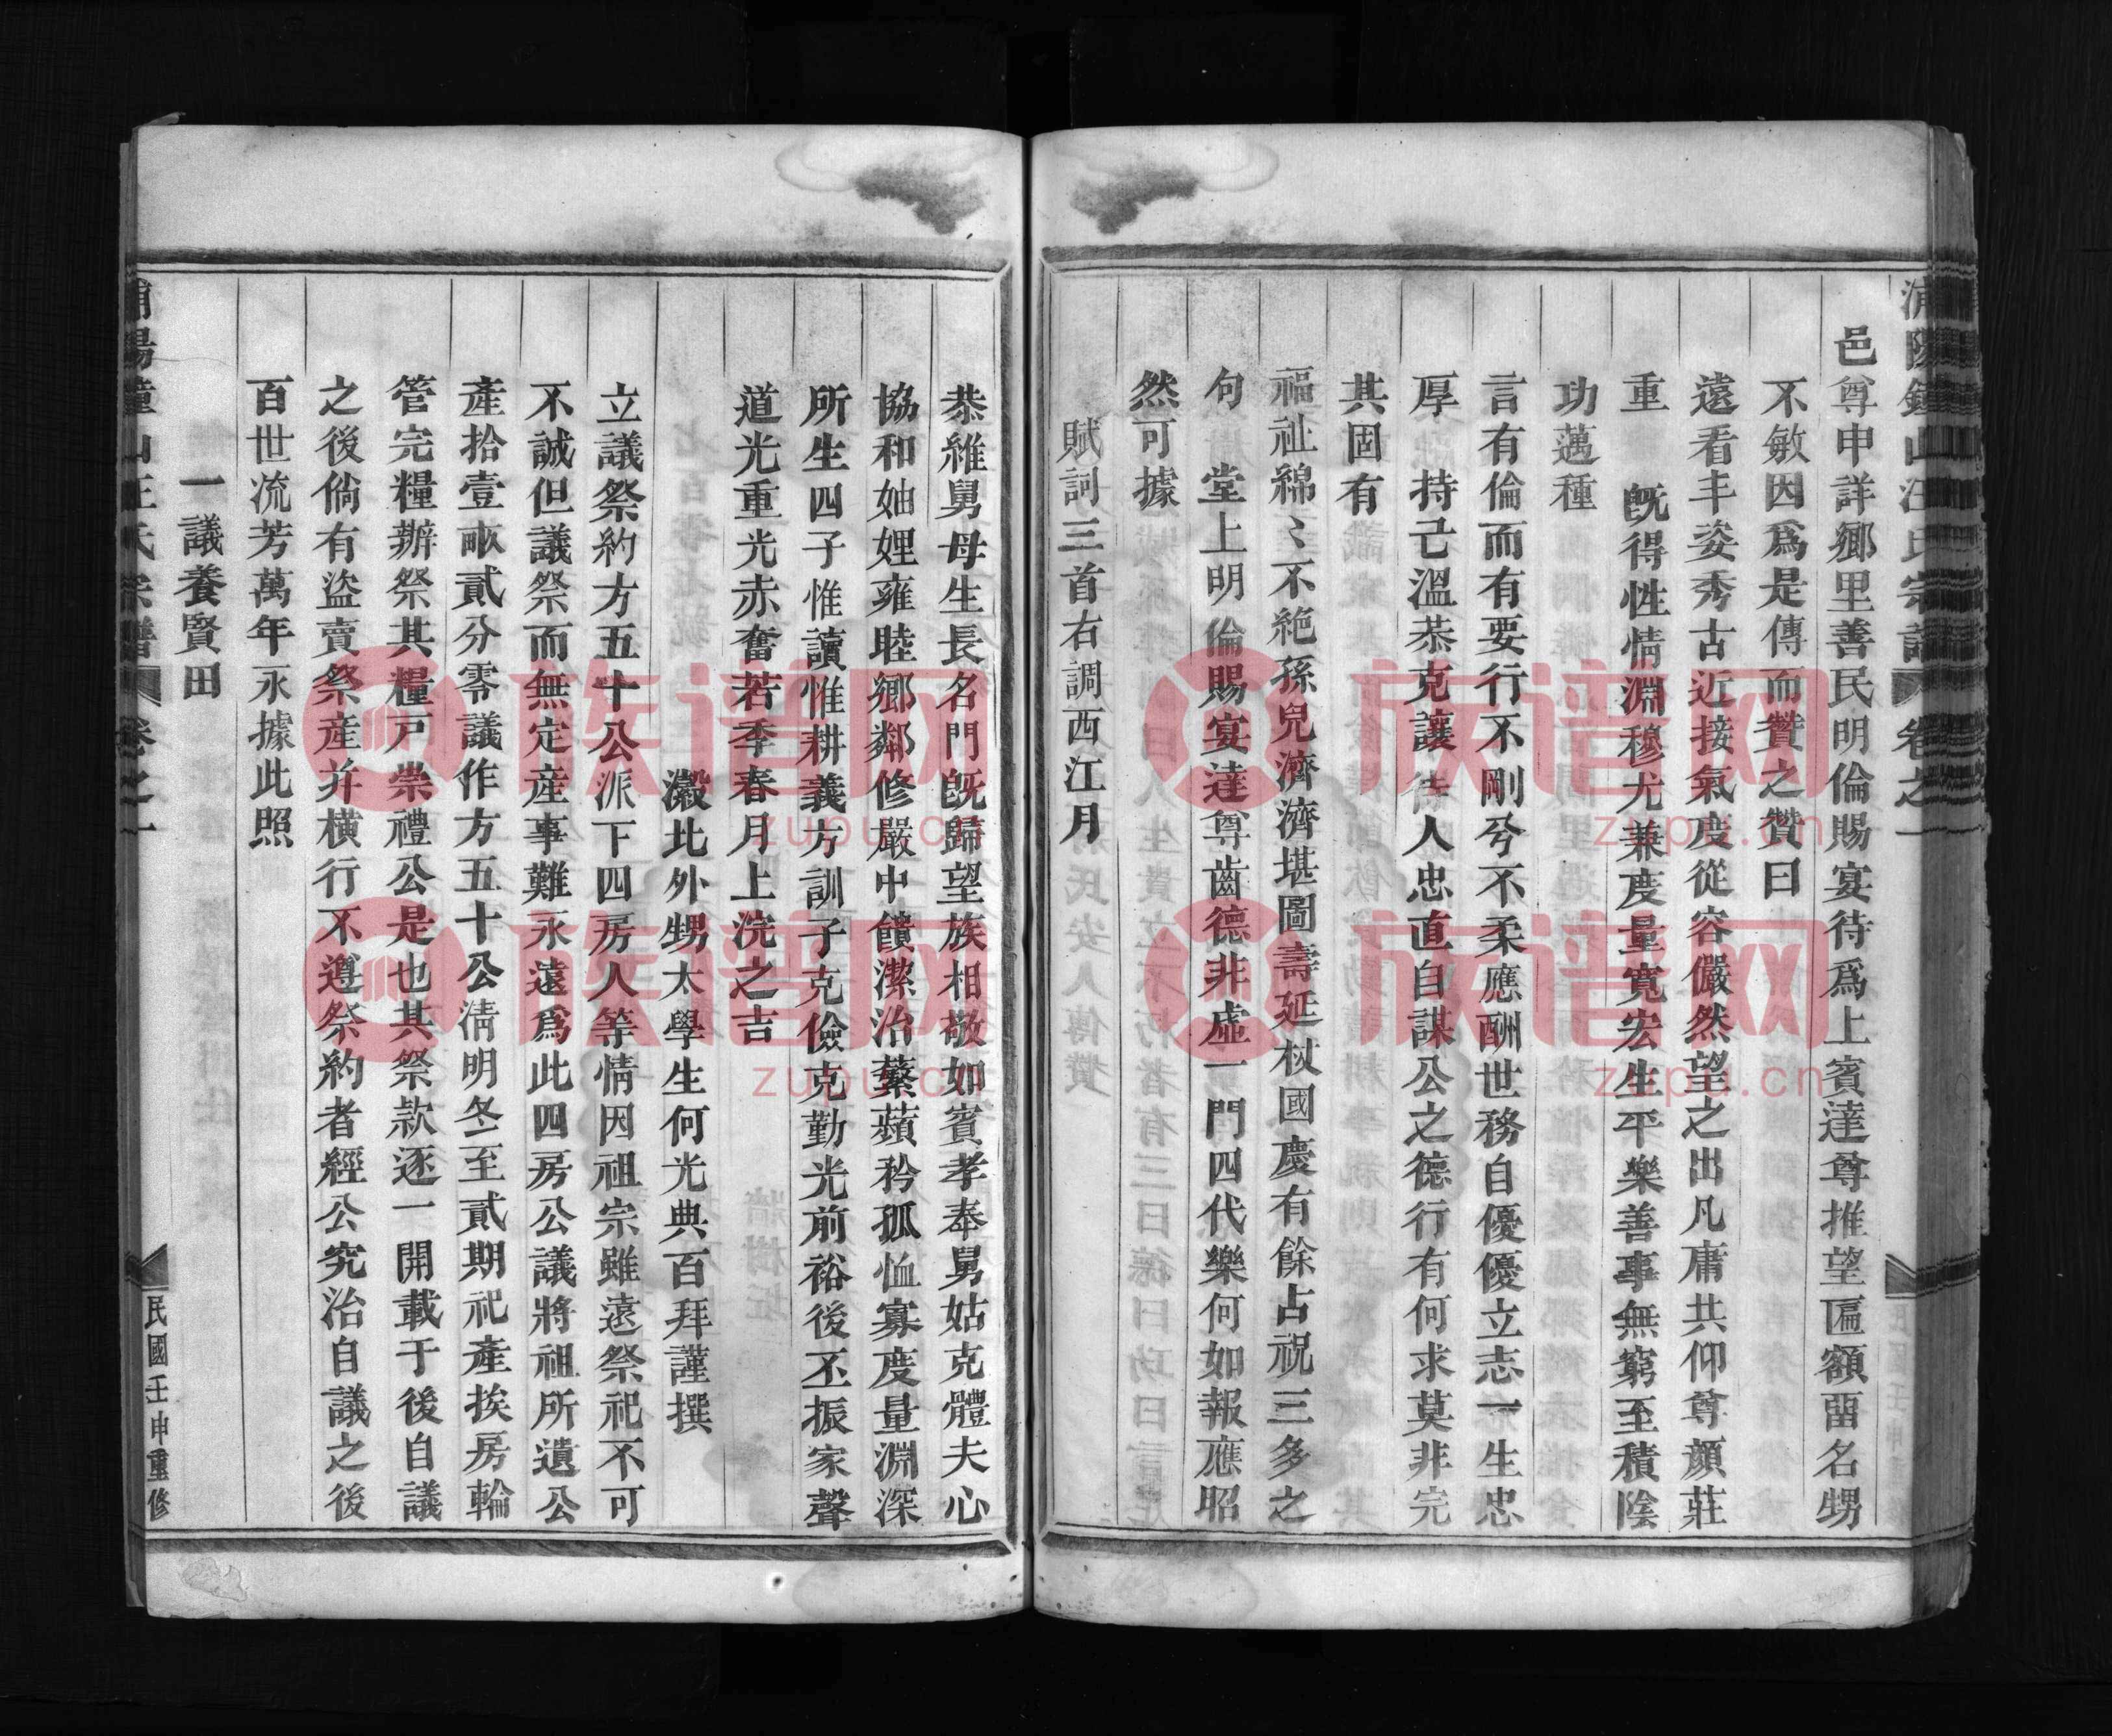 浦陽鐘山汪氏宗譜 卷之一
邑尊申詳鄉里善民明倫賜宴待爲上賓達尊推望匾額畱名甥
不敏因爲是傳而贊之贊曰
遠看丰姿秀古近接氣度從容儼然望之出凡庸共仰尊顏莊
重 旣得性情淵穆尤兼度量寬宏生平樂善事無窮至積陰
功邁種
言有倫而有要行不剛兮不柔應酬世務自優優立志一生忠
厚 持己溫恭克讓待人忠直自謀公之德行有何求莫非完
其固有
福祉綿〻不絶孫兒濟濟堪圖壽延杖國慶有餘占祝三多之
句 堂上明倫賜宴達尊齒德非虛一門四代樂何如報應昭
然可據
賦詞三首右調西江月
恭維舅母生長名門旣歸望族相敬如賓孝奉舅姑克體夫心
協和妯娌雍睦鄉鄰修嚴中饋潔治蘩蘋矜孤恤寡度量淵深
所生四子惟讀惟耕義方訓子克儉克勤光前裕後丕振家聲
道光重光赤奮若季春月上浣之吉
瀫北外甥太學生何光典百拜謹撰
立議祭約方五十公派下四房人等情因祖宗雖遠祭祀不可
不誠但議祭而無定産事難永遠爲此四房公議將祖所遺公
產拾壹畝貳分零議作方五十公淸明冬至貳期祀產挨房輪
管完糧辦祭其糧戸崇禮公是也其祭款逐一開載于後自議
之後倘有盜賣祭産并橫行不遵祭約者經公究治自議之後
百世流芳萬年永據此照
一議養賢田
浦陽鐘山汪氏宗譜 卷之一
民國壬申重修
族谱网
zupu.cn
族谱网
zupu.cn
族谱网
zupu.cn
族谱网
zupu.cn